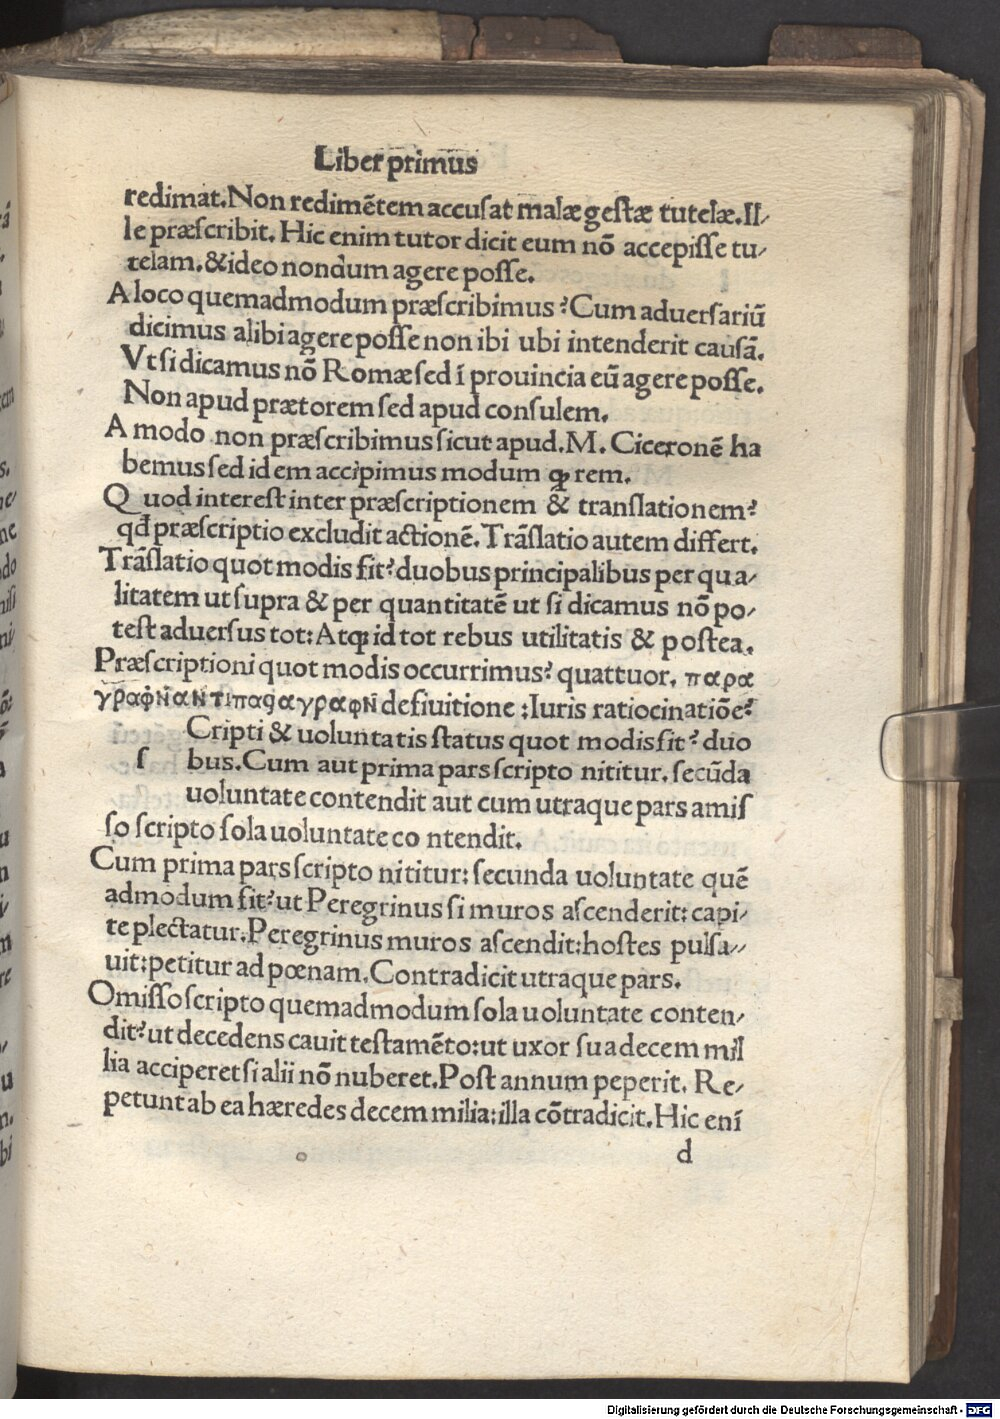 Liber primus
redimat. Non redimētem accusat malæ gestæ tutelæ. Il-
le præscribit. Hic enim tutor dicit eum nō accepisse tu-
telam. & ideo nondum agere posse.
A loco quemadmodum præscribimus? Cum aduersariū
dicimus alibi agere posse non ibi ubi intenderit causā.
Vt si dicamus nō Romæ sed ī prouincia eū agere posse.
Non apud prætorem sed apud consulem.
A modo non præscribimus sicut apud. M. Ciceronē ha
bemus sed idem accipimus modum ꝙ rem.
Quod interest inter præscriptionem & translationem?
qđ præscriptio excludit actionē. Trāslatio autem differt.
Trāslatio quot modis fit? duobus principalibus per qua-
litatem ut supra & per quantitatē ut si dicamus nō po-
test aduersus tot: Atqꝫ id tot rebus utilitatis & postea.
Præscriptioni quot modis occurrimus? quattuor. παρα
γραφὴν αντιπαραγραφὴν defiuitione: Iuris ratiocinatiōe?
Cripti & uoluntatis status quot modis fit? duo
s bus. Cum aut prima pars scripto nititur. secūda
uoluntate contendit aut cum utraque pars amis
so scripto sola uoluntate co ntendit.
Cum prima pars scripto nititur: secunda uoluntate quē
admodum fit? ut Peregrinus si muros ascenderit: capi-
te plectatur. Peregrinus muros ascendit: hostes pulsa-
uit: petitur ad pœnam. Contradicit utraque pars.
Omisso scripto quemadmodum sola uoluntate conten-
dit? ut decedens cauit testamēto: ut uxor sua decem mil
lia acciperet si alii nō nuberet. Post annum peperit. Re-
petunt ab ea hæredes decem milia: illa cōtradicit. Hic enī
d
Digitalisierung gefördert durch die Deutsche Forschungsgemeinschaft - DFG